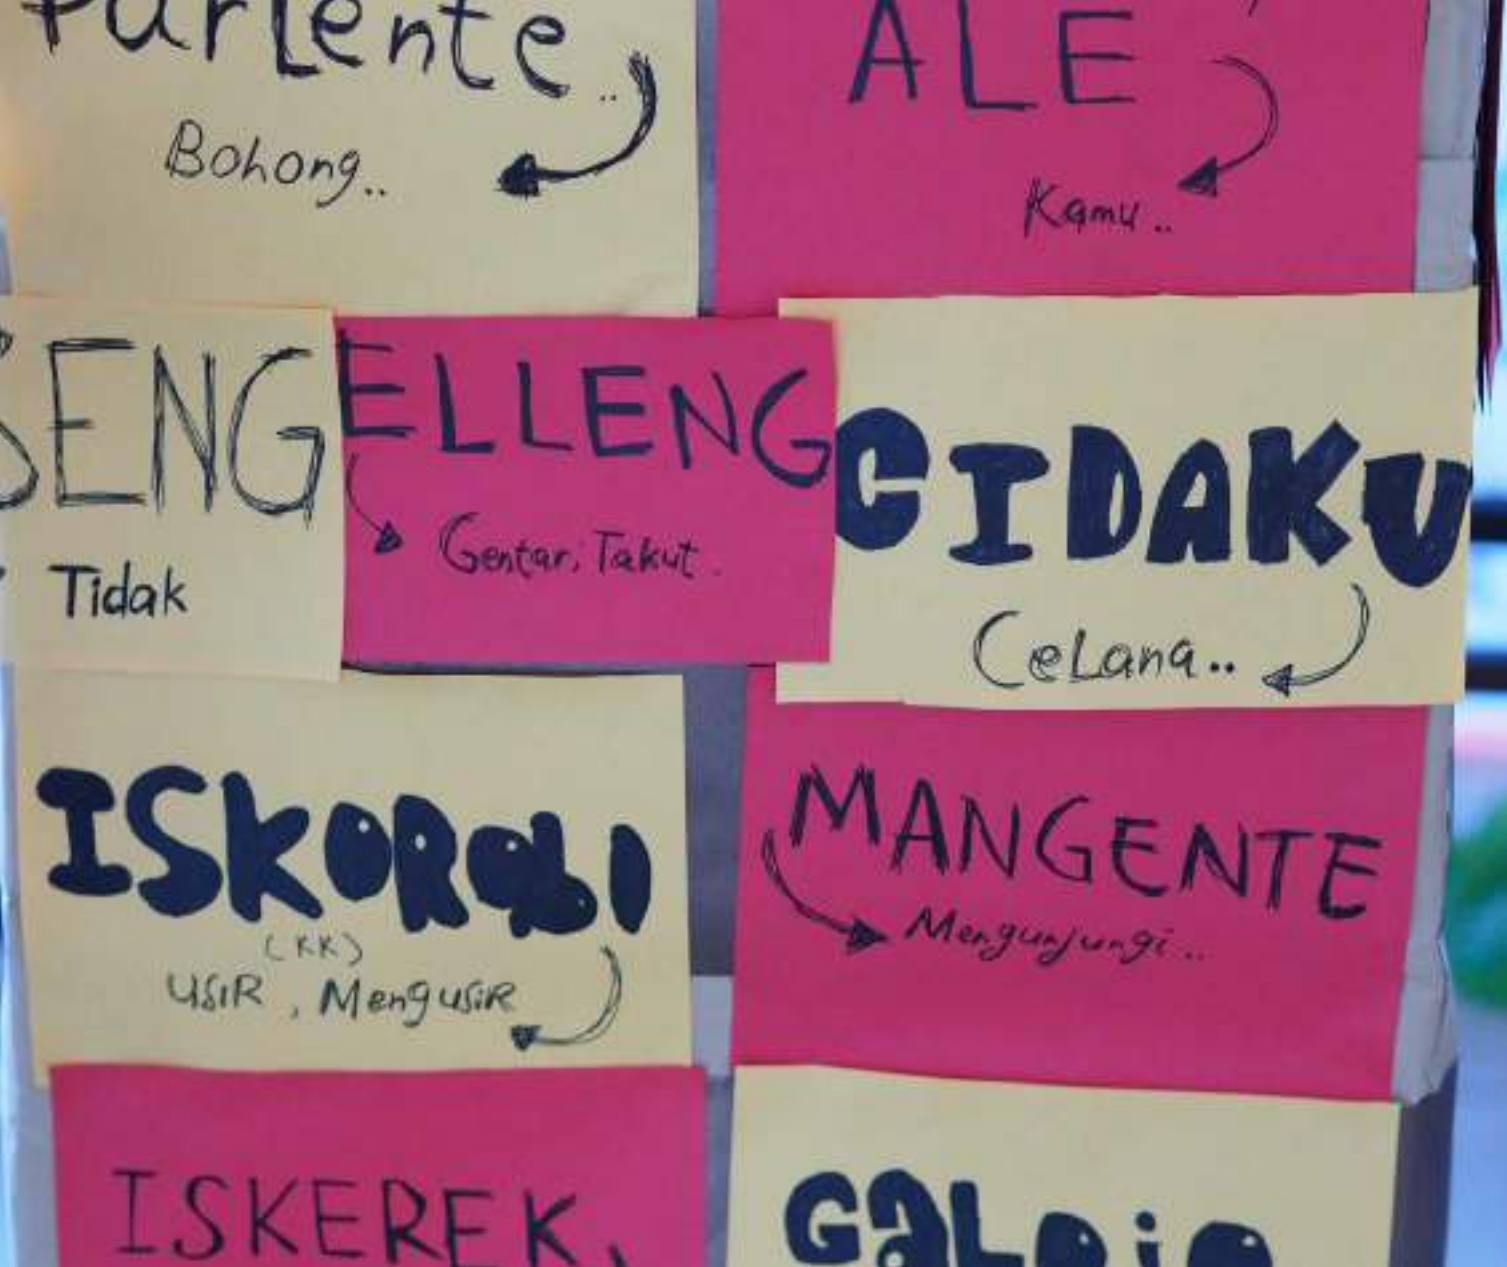 Parlente..
Bohong..
ALE
Kamu..
SENG
Tidak
ELLENG
Gentar, Takut.
CIDAKU
Celana..
ISKOROBI
(KK)
USIR, Mengusir
MANGENTE
Mengunjungi..
ISKEREK,